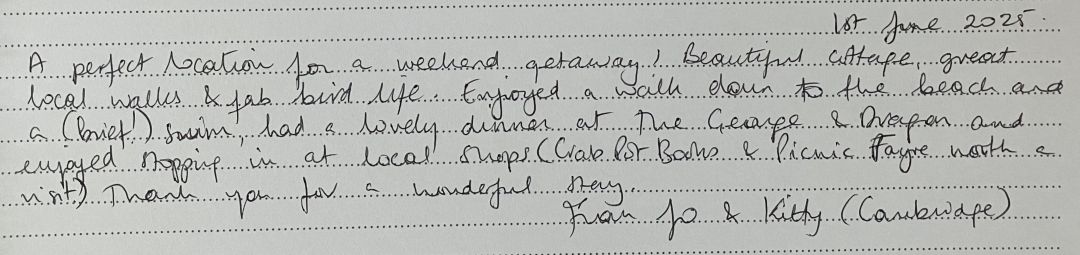 1st June 2025.
A perfect location for a weekend getaway! Beautiful cottage, great
local walks & fab bird life. Enjoyed a walk down to the beach and
a (brief!) swim, had a lovely dinner at the George & Dragon and
enjoyed stopping in at local shops (Crab Pot Books & Picnic Fayre worth a
visit). Thank you for a wonderful stay.
From Jo & Kitty (Cambridge)